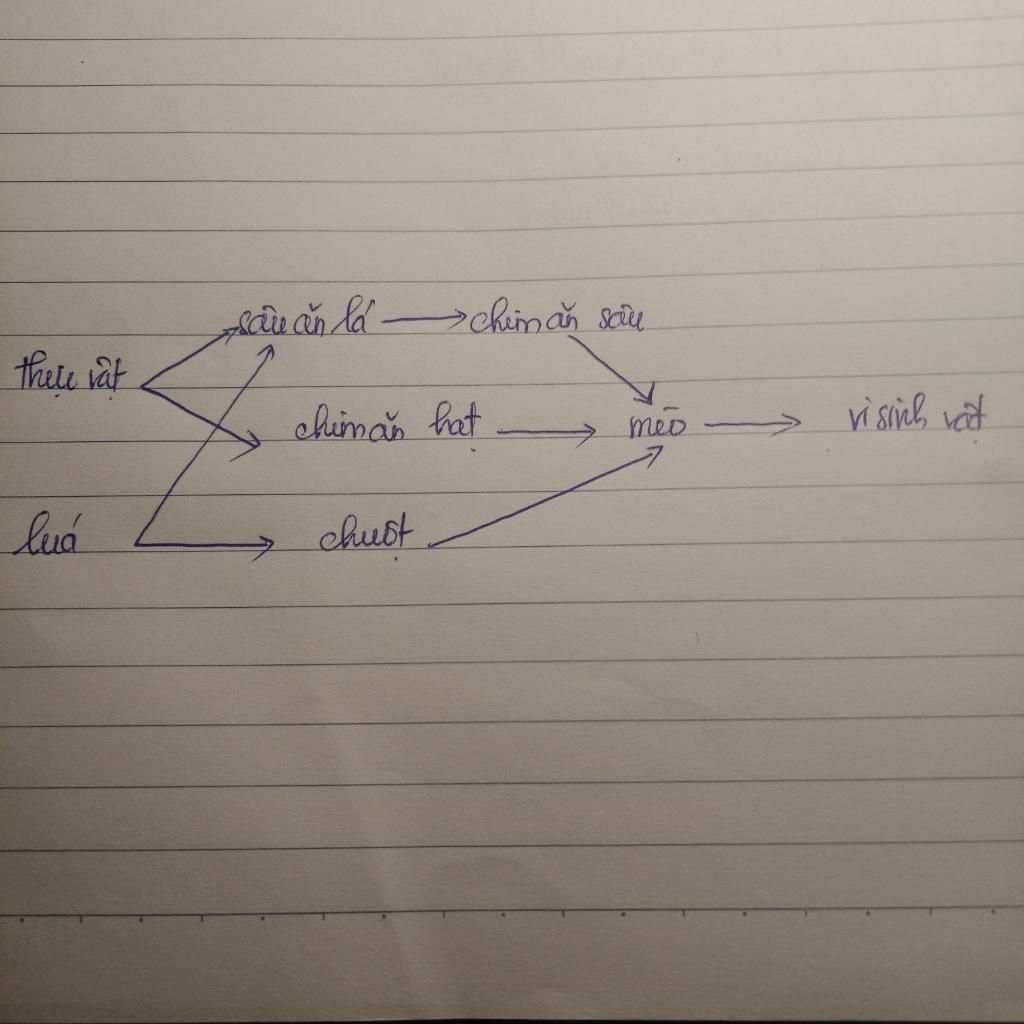 sâu ăn lá → chim ăn sâu
thực vật
chim ăn hạt → mèo → vi sinh vật
luá → chuột